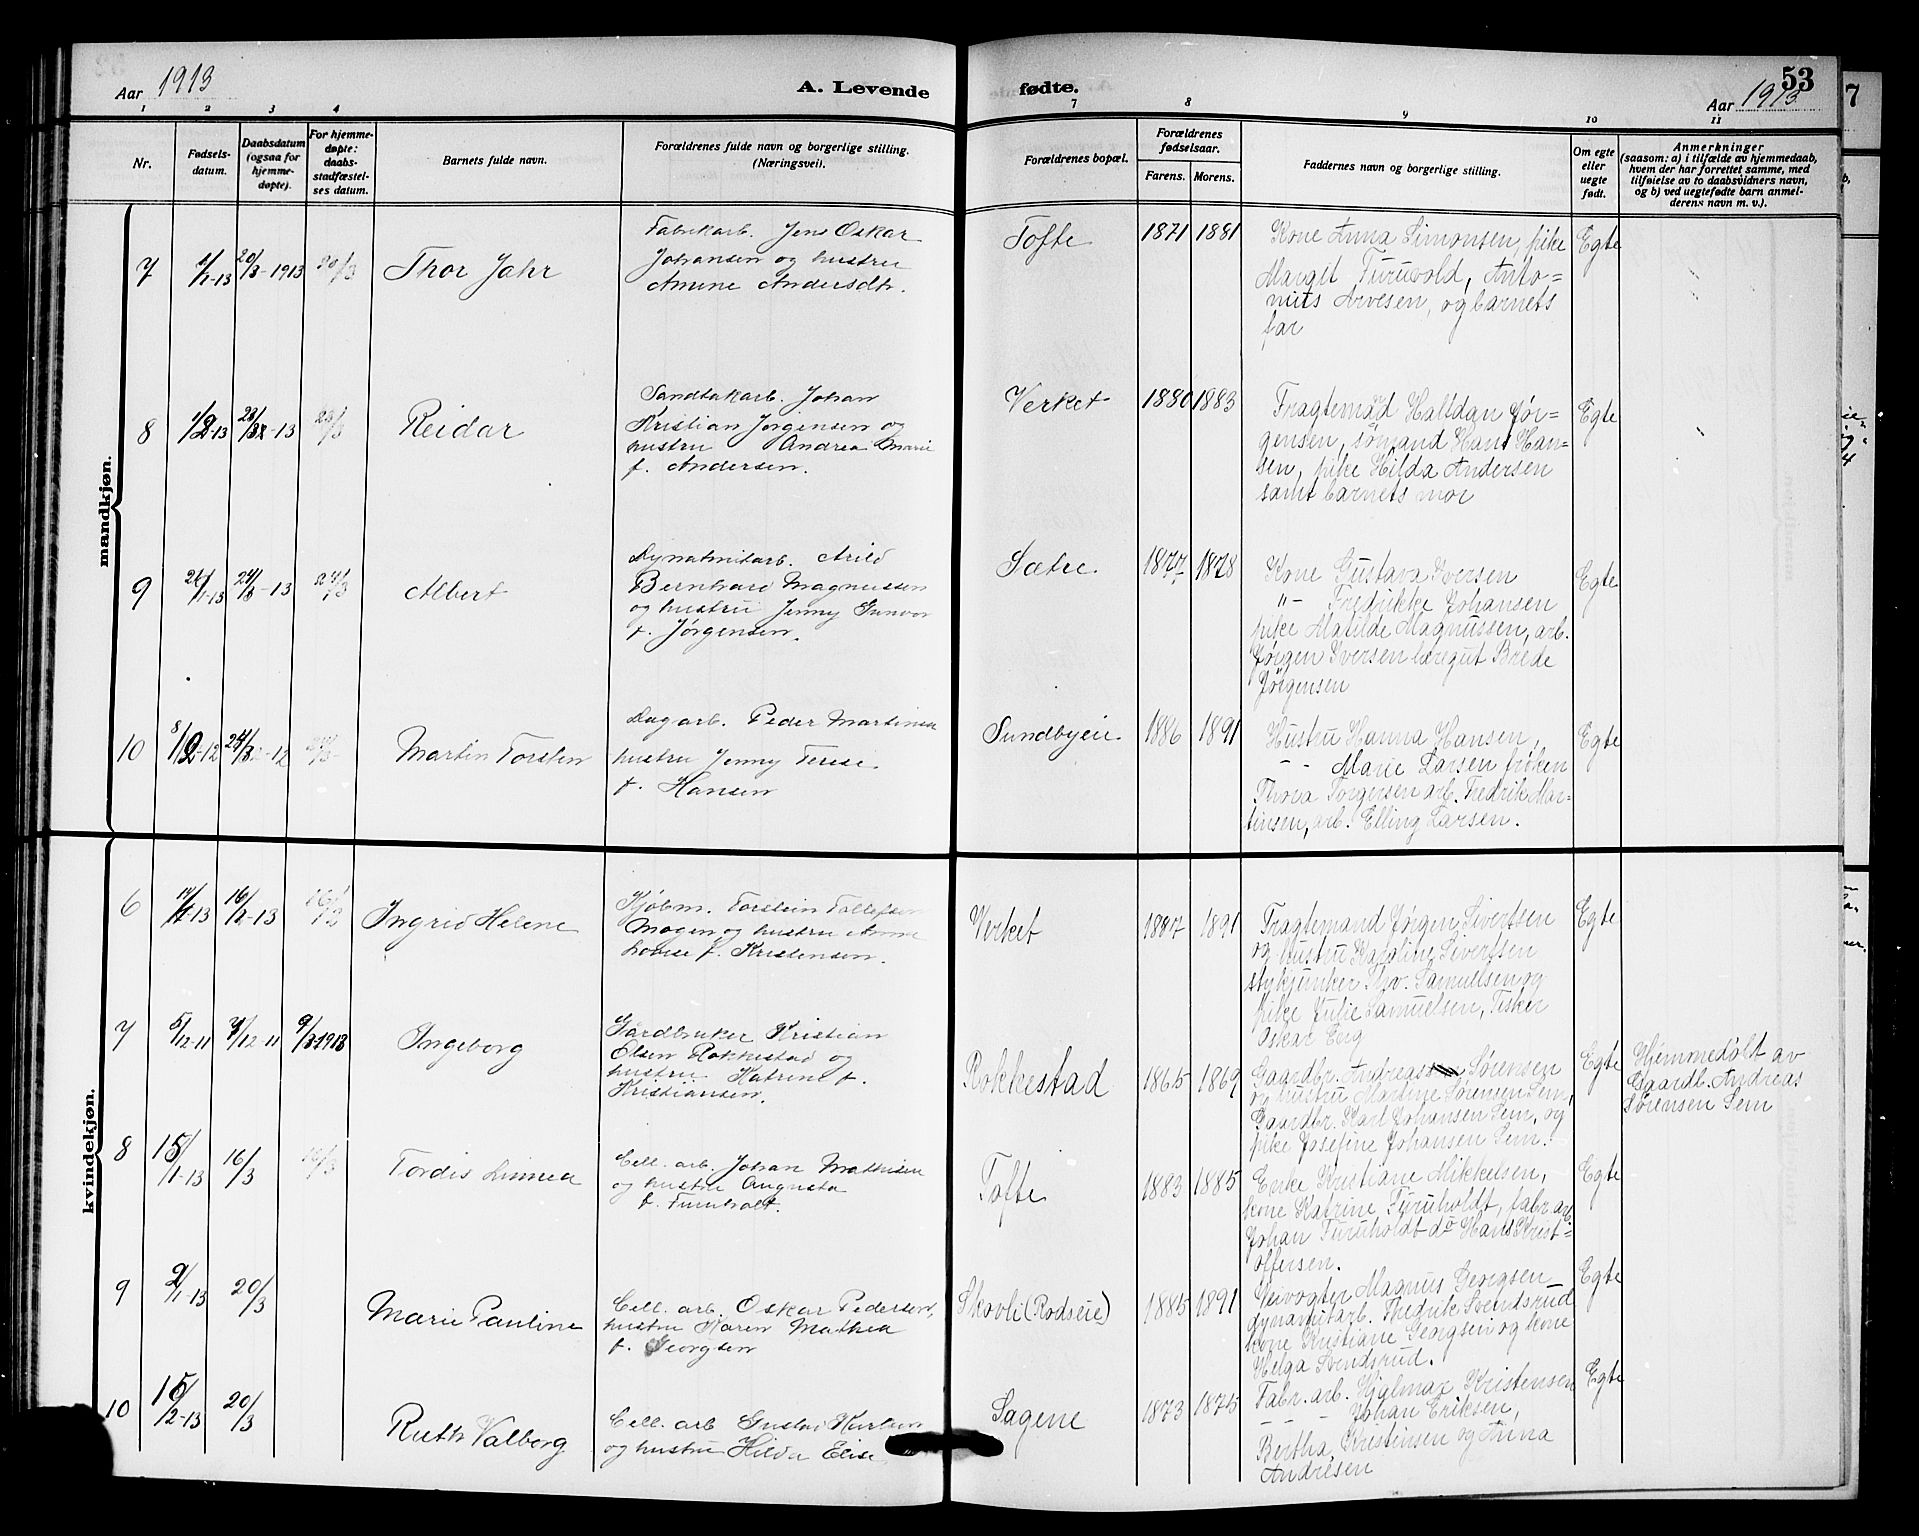 Aar 1913
A. Levende
fødte.
53
Aar 1913
7
1 2 3 4 7 8 9 10 11
Nr.
Fødsels-
datum.
Daabsdatum
(ogsaa for
hjemme-
døpte).
For hjemme-
døpte:
daabs-
stadfæstel-
ses datum.
Barnets fulde navn.
Forældrenes fulde navn og borgerlige stilling.
(Næringsvei).
Forældrenes bopæl.
Forældrenes
fødselsaar.
Farens. Morens.
Faddernes navn og borgerlige stilling.
Om egte
eller
uegte
født.
Anmerkninger
(saasom: a) i tilfælde av hjemmedaab,
hvem der har forrettet samme, med
tilføielse av to daabsvidners navn,
og b) ved uegtefødte barn anmel-
derens navn m. v.).
mandkjøn.
7
20/3-1913
20/3
Thor Jahr
Fabrikarb. Jens Oskar
Johansen og hustru
Amine Andersdtr.
Tofte
1871 1881
Kone Anna Simonsen, pike
Margit Furuvold, Anto-
nius Arvesen, og barnets
far
Egte
8
1/2-13
Reidar
Sandtakarb. Johan
Kristian Jørgensen og
hustru Andrea Marie
f. Andersen.
Verket
1880 1883
Fragtemand Halfdan Jør-
gensen, sømand Hans Han-
sen, pike Hilda Andersen
samt barnets mor
Egte
9
24/3-13
24/3
Albert
Dynamitarb. Arild
Bernhard Magnussen
og hustru Jenny Gunvor
f. Jørgensen.
Sætre
1877 1878
Kone Gustava Iversen
"- Fredrikke Johansen
pike Matilde Magnussen, arb.
Jørgen Iversen læregut Brede
Jørgensen
Egte
10
Martin Torsten
Dagarb. Peder Martinsen
hustru Jenny Terese
f. Hansen
Sundbyeie
1886 1891
Hustru Hanna Hansen,
- - Marie Larsen frøken
Thora Torgersen arb. Fredrik Mar-
tinsen, arb. Elling Larsen.
Egte
kvindekjøn.
6
Ingrid Helene
Kjøbm. Torstein Tollefsen
Mogen og hustru Anna
Lovise f. Kristensen.
Verket
1887 1891
Fragtemand Jørgen Sivertsen
og hustru Karoline Sivertsen
stykjunker Thv. Samuelsen og
pike Julie Samuelsen, Fisker
Oskar Eng
Egte
7
5/12-11
9/3-1913
Ingeborg
Gårdbruker Kristian
Olsen Rokkestad og
hustru Katrine f.
Kristiansen.
Rokkestad
1865 1869
Gaardbr. Andreas Sørensen
og hustru Martine Sørensen Sem,
Gaardbr. Karl Johansen Sem, og
pike Josefine Johansen Sem.
Egte
Hjemmedøbt av
Gaardb. Andreas
Sørensen Sem
8
15/1-13
16/3
16/3
Tordis Linnea
Cell. arb. Johan Mathisen
og hustru Augusta
f. Furuholt.
Tofte
1883 1885
Enke Kristiane Mikkelsen,
kone Katrine Furuholdt, fabr. arb.
Johan Furuholdt do Hans Krist-
offersen.
Egte
9
2/1-13
20/3
Marie Pauline
Cell. arb. Oskar Pedersen,
hustru Karen Mathea
f. Georgsen
Skovli (Rodseie)
1885 1891
Veivogter Magnus Georgsen
dynamitarb. Fredrik Svendsrud
kone Kristiane Georgsen og kone
Helga Svendsrud.
Egte
10
15/2-13
20/3
Ruth Valborg
Cell. arb Gustav
og hustru Hilda Elise
Sagene
1873 1875
Fabr. arb. Hjalmar Kristensen
- - - Johan Eriksen,
Bertha Kristensen og Anna
Andresen
Egte